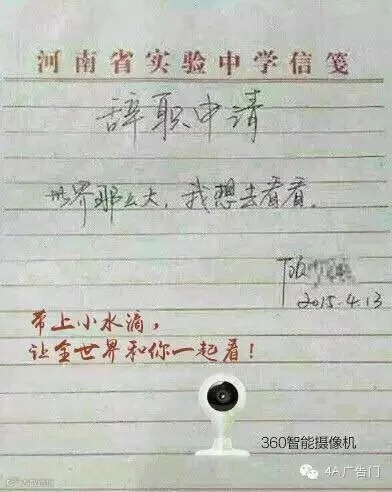 河南省实验中学信笺
辞职申请
世界那么大，我想去看看。
2015.4.13
带上小水滴，
让全世界和你一起看！
360智能摄像机
4A广告门